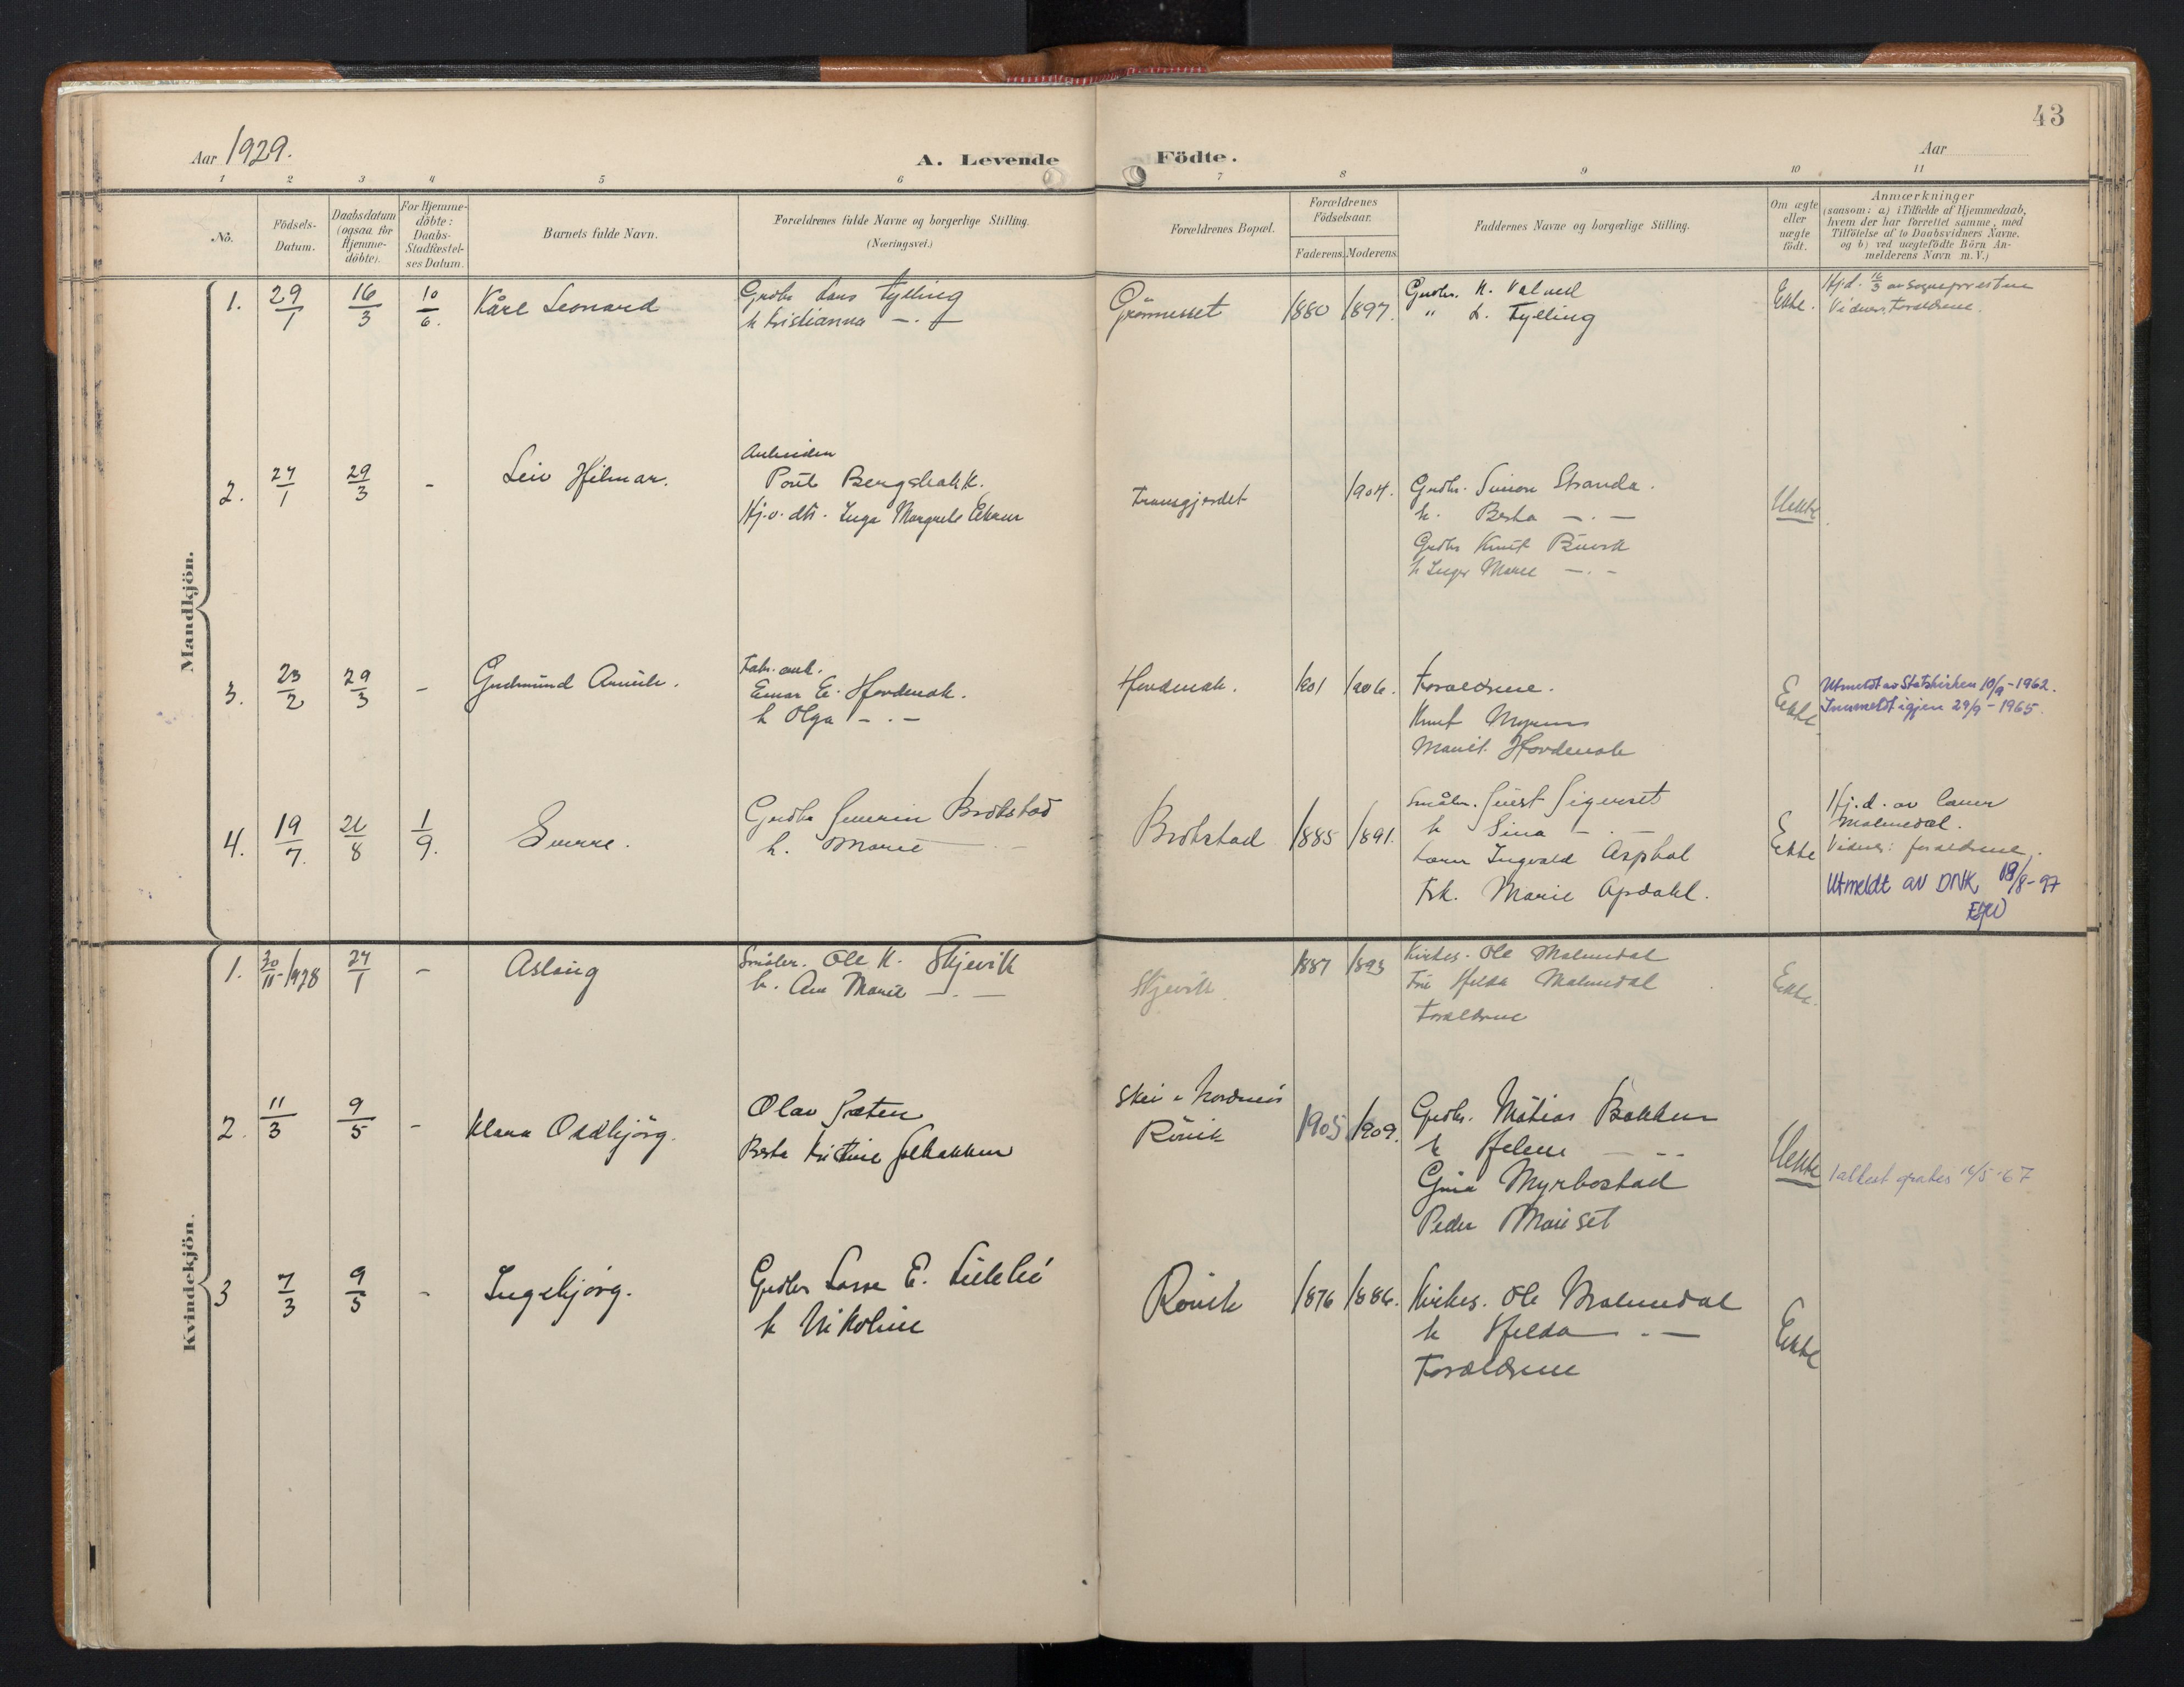 43
Aar 1929.
A. Levende Födte.
Aar
1 2 3 4 5 6 7 8 9 10 11
No.
Födsels-Datum.
Daabsdatum (ogsaa for Hjemmedöbte).
For Hjemmedöbte: Daabs-Stadfæstelses Datum.
Barnets fulde Navn.
Forældrenes fulde Navne og borgerlige Stilling.
(Næringsvei.)
Forældrenes Bopæl.
Forældrenes Födselsaar.
Faderens. Moderens.
Faddernes Navne og borgerlige Stilling.
Om ægte eller uægte födt.
Anmærkninger
(saasom: a) i Tilfælde af Hjemmedaab,
hvem der har forrettet samme, med
Tilföielse af to Daabsvidners Navne.
og b) ved uægtefödte Börn An-
melderens Navn m. V.)
Mandkjön.
1. 29/1 16/3 10/6. Kåre Leonard
Grdbr Lars Fylling
h Kristianna — . —
Grönnesset 1880 1897.
Grdbr. K. Valved
" L. Fylling
Ekte.
Hj.d. 16/3 av Sognepresten
Vidner, Foreldrene.
2. 27/1 29/3 - Leiv Hilmar.
Arbeider
Poul Bergsbakk.
Hj.v. dtr. Inga Margrete
1904.
Grdbr. Simon Stranda.
h. Berta — . —
Grdbr Knut
h Inger Marie — . —
Uekte
3. 23/2 29/3 - Gudmund
Fabr. arb.
Einar E. Hovdenak.
h Olga — . —
Hovdenak. 1901 1906.
Foreldrene.
Knut
Marit. Hovdenak
Ekte
Utmeldt av Statskirken 10/9-1962.
Innmeldt igjen 29/9-1965.
4. 19/7. 26/8 1/9. Sverre.
Grdbr Severin Brokstad
h. Marie — . —
Brokstad 1885 1891.
Småbr. Sivert Sigerset
h Sina — . —
Lærer Ingvald Asphol
Frk. Marie Apdahl.
Ekte
Hj.d. av lærer
Malmedal.
Vidner: foreldrene.
Utmeldt av DNK 18/8-97
Kvindekjön.
1. 30/11-1928 27/1 - Aslaug
Småbr. Ole K. Skjevik
h. Ane Marie — . —
Skjevik 1887 1893
Kirkes. Ole Malmedal
Fru Hilda Malmedal
Foreldrene
Ekte.
2. 11/3 9/5 - Klara Oddbjörg.
Olav Sæten
Berta Kristine Solbakken
Skei i
Rövik 1905 1909.
Grdbr. Matias Bakken
h Helene — . —
Gina Myrbostad
Peder Mauset
Uekte
1 attest gratis
3 7/3 9/5 - Ingebjörg.
Grdbr Lasse E.
h Nikoline
Rövik 1876 1886.
Kirkes. Ole Malmedal
h Hilda — . —
Foreldrene
Ekte